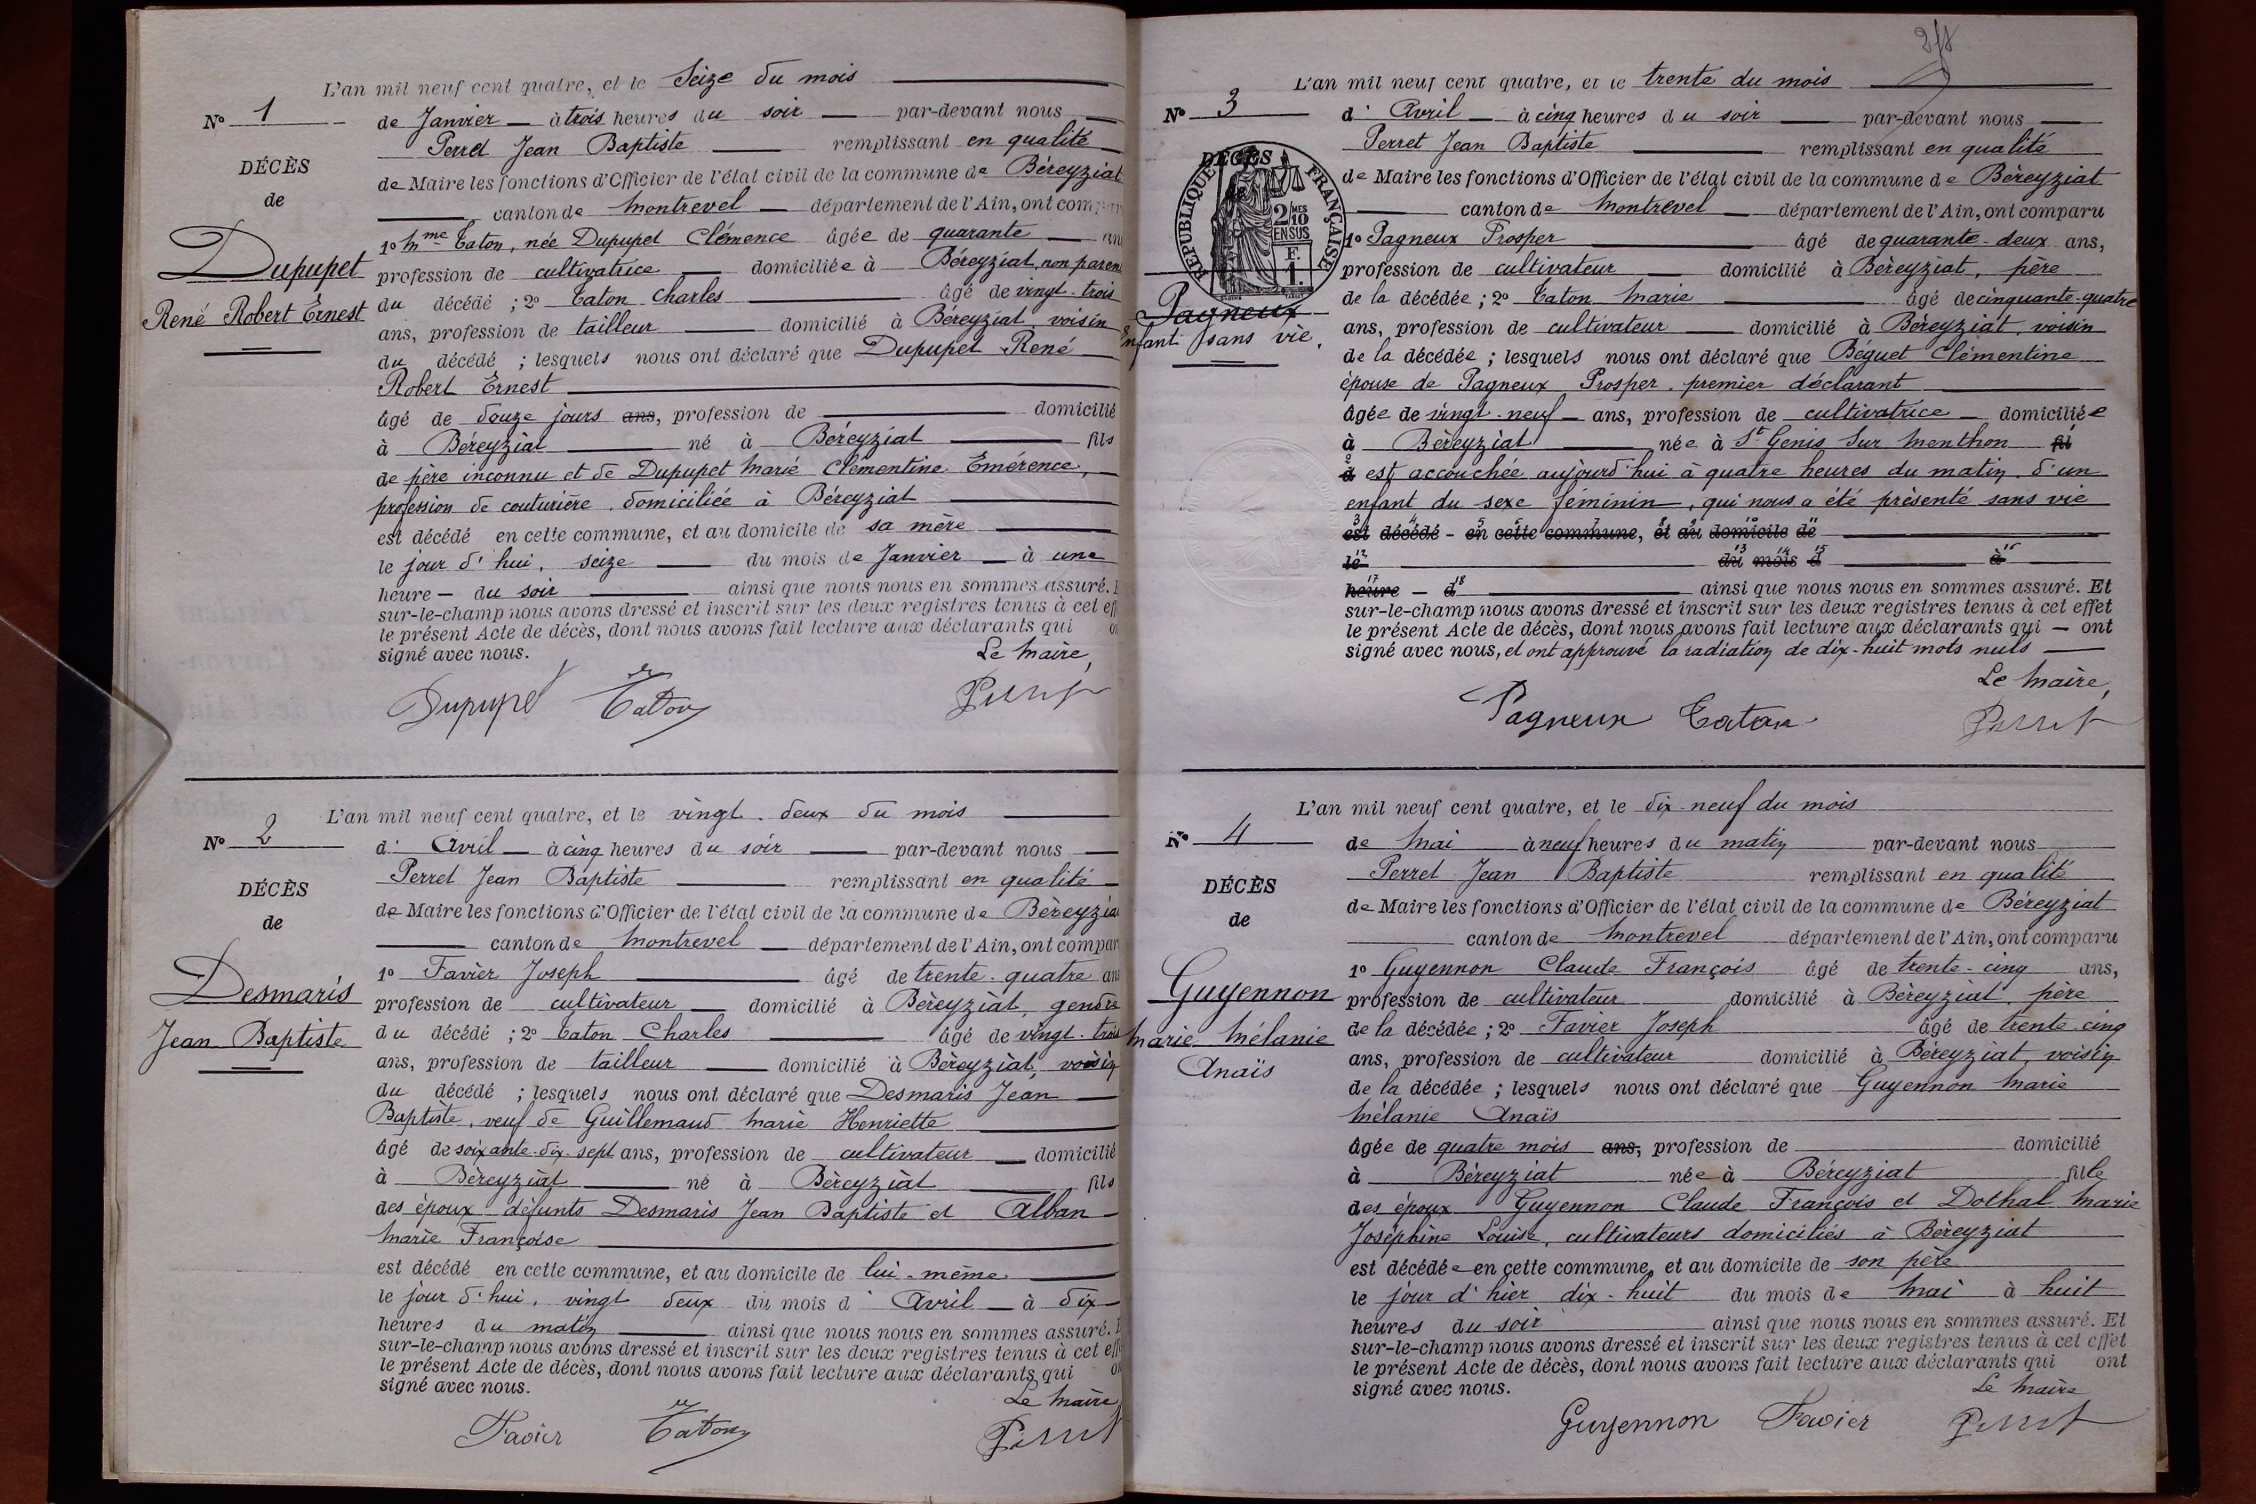 L'an mil neuf cent quatre, et le Seize du mois
N° 1
de Janvier à trois heures du soir par-devant nous
Perret Jean Baptiste remplissant en qualité
DÉCÈS
de Maire les fonctions d'Officier de l'état civil de la commune de Béreyziat
de
canton de Montrevel département de l'Ain, ont
1° Mme Caton, née Dupupet Clémence âgée de quarante
Dupupet
profession de cultivatrice domiciliée à Béreyziat, non
René Robert Ernest
du décédé ; 2° Caton Charles âgé de vingt-trois
ans, profession de tailleur domicilié à Béreyziat voisin
du décédé ; lesquels nous ont déclaré que Dupupet René
Robert Ernest
âgé de douze jours ans, profession de domicilié
à Béreyziat né à Béreyziat fils
de père inconnu et de Dupupet Marie Clémentine Emérence,
profession de couturière domiciliée à Béreyziat
est décédé en cette commune, et au domicile de sa mère
le jour d'hui, seize du mois de Janvier à une
heure du soir ainsi que nous nous en sommes assuré.
sur-le-champ nous avons dressé et inscrit sur les deux registres tenus à cet
le présent Acte de décès, dont nous avons fait lecture aux déclarants qui
signé avec nous.
Le Maire,
Dupupet Caton Perret
L'an mil neuf cent quatre, et le vingt-deux du mois
N° 2
d'Avril à cinq heures du soir par-devant nous
Perret Jean Baptiste remplissant en qualité
DÉCÈS
de Maire les fonctions d'Officier de l'état civil de la commune de
de
canton de Montrevel département de l'Ain, ont
1° Favier Joseph âgé de trente-quatre
Desmaris
profession de cultivateur domicilié à Béreyziat, gendre
Jean Baptiste
du décédé ; 2° Caton Charles âgé de vingt-trois
ans, profession de tailleur domicilié à Béreyziat, voisin
du décédé ; lesquels nous ont déclaré que Desmaris Jean
Baptiste, veuf de Guillemaud Marie Henriette
âgé de soixante-dix-sept ans, profession de cultivateur domicilié
à Béreyziat né à Béreyziat fils
des époux défunts Desmaris Jean Baptiste et Alban
Marie Françoise
est décédé en cette commune, et au domicile de lui-même
le jour d'hui, vingt deux du mois d'Avril à dix
heures du matin ainsi que nous nous en sommes assuré.
sur-le-champ nous avons dressé et inscrit sur les deux registres tenus à cet
le présent Acte de décès, dont nous avons fait lecture aux déclarants qui
signé avec nous.
Le Maire
Favier Caton Perret
L'an mil neuf cent quatre, et le trente du mois
N° 3
d'Avril à cinq heures du soir par-devant nous
Perret Jean Baptiste remplissant en qualité
DÉCÈS
RÉPUBLIQUE FRANÇAISE
2/10 MES
EN SUS
F.
1.
de Maire les fonctions d'Officier de l'état civil de la commune de Béreyziat
canton de Montrevel département de l'Ain, ont comparu
1° Pagneux Prosper âgé de quarante-deux ans,
profession de cultivateur domicilié à Béreyziat, père
Pagneux
enfant sans vie.
de la décédée ; 2° Caton Marie âgé de cinquante-quatre
ans, profession de cultivateur domicilié à Béreyziat, voisin
de la décédée ; lesquels nous ont déclaré que Béguet Clémentine
épouse de Pagneux Prosper premier déclarant
âgée de vingt-neuf ans, profession de cultivatrice domiciliée
à Béreyziat née à St Genis sur Menthon fil
d est accouchée aujourd'hui à quatre heures du matin d'un
enfant du sexe féminin, qui nous a été présenté sans vie
est décédé en cette commune, et au domicile de
le du mois d à
heure d ainsi que nous nous en sommes assuré. Et
sur-le-champ nous avons dressé et inscrit sur les deux registres tenus à cet effet
le présent Acte de décès, dont nous avons fait lecture aux déclarants qui ont
signé avec nous, et ont approuvé la radiation de dix-huit mots nuls
Le Maire,
Pagneux Caton Perret
L'an mil neuf cent quatre, et le dix-neuf du mois
N° 4
de Mai à neuf heures du matin par-devant nous
Perret Jean Baptiste remplissant en qualité
DÉCÈS
de Maire les fonctions d'Officier de l'état civil de la commune de Béreyziat
de
canton de Montrevel département de l'Ain, ont comparu
1° Guyennon Claude François âgé de trente-cinq ans,
Guyennon
profession de cultivateur domicilié à Béreyziat, père
Marie Mélanie
de la décédée ; 2° Favier Joseph âgé de trente cinq
Anaïs
ans, profession de cultivateur domicilié à Béreyziat, voisin
de la décédée ; lesquels nous ont déclaré que Guyennon Marie
Mélanie Anaïs
âgée de quatre mois ans, profession de domicilié
à Béreyziat née à Béreyziat fille
des époux Guyennon Claude François et Dothal Marie
Joséphine Louise, cultivateurs domiciliés à Béreyziat
est décédée en cette commune, et au domicile de son père
le jour d'hier dix-huit du mois de Mai à huit
heures du soir ainsi que nous nous en sommes assuré. Et
sur-le-champ nous avons dressé et inscrit sur les deux registres tenus à cet effet
le présent Acte de décès, dont nous avons fait lecture aux déclarants qui ont
signé avec nous.
Le Maire
Guyennon Favier Perret